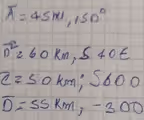 A̅ = 45 m, 150°
B̅ = 60 km, S 40 E
C̅ = 50 km; S60O
D̅ = 55 km, -300